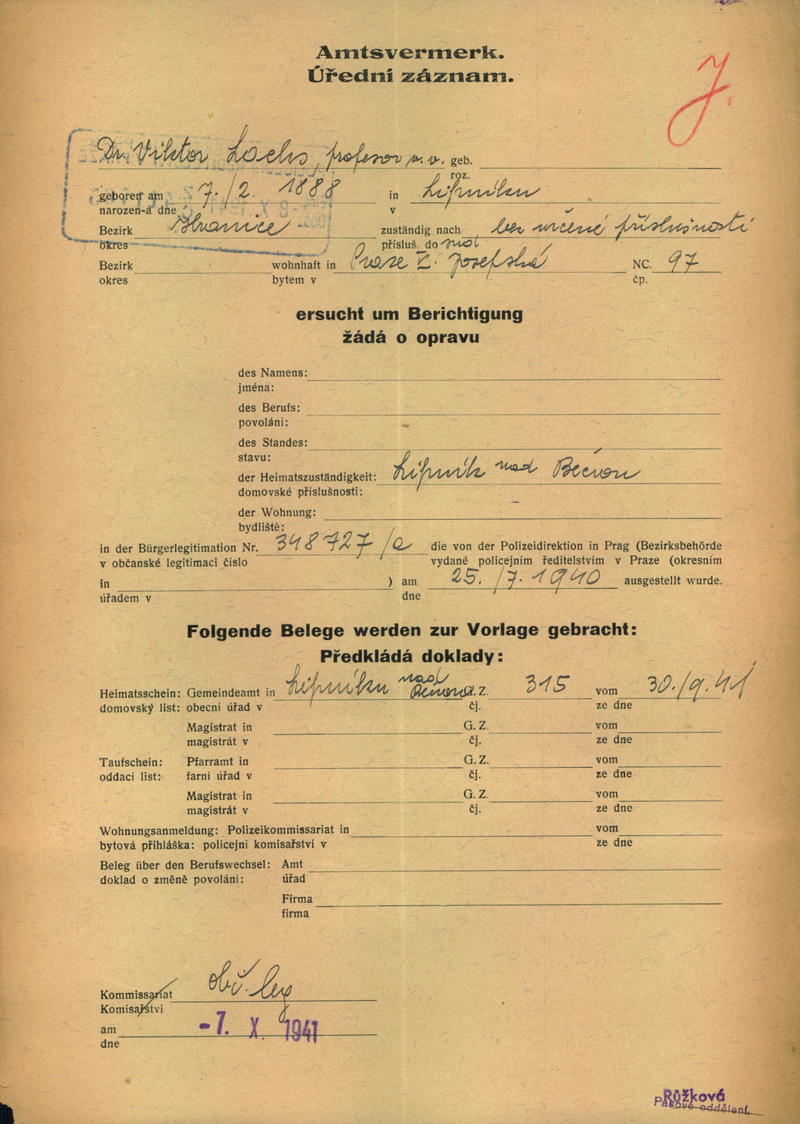 Amtsvermerk.
Úřední záznam.
J.
Dr. Viktor Lachs, profesor v. v. geb.
roz.
geboren am 7./2. 1888 in Lipníku
narozen-á dne v
Bezirk Hranice zuständig nach bez určené příslušnosti
okres přísluš. do
Bezirk wohnhaft in Praze V. Josefská NC. 97
okres bytem v čp.
ersucht um Berichtigung
žádá o opravu
des Namens:
jména:
des Berufs:
povolání:
des Standes:
stavu:
der Heimatszuständigkeit: Lipník nad Bečvou
domovské příslušnosti:
der Wohnung:
bydliště:
in der Bürgerlegitimation Nr. 348727/ die von der Polizeidirektion in Prag (Bezirksbehörde
v občanské legitimaci číslo vydané policejním ředitelstvím v Praze (okresním
in ) am 25./7. 1940 ausgestellt wurde.
úřadem v dne
Folgende Belege werden zur Vorlage gebracht:
Předkládá doklady:
Heimatsschein: Gemeindeamt in Lipníku nad Bečvou G. Z. 315 vom 30./9. 41
domovský list: obecní úřad v čj. ze dne
Magistrat in G. Z. vom
magistrát v čj. ze dne
Taufschein: Pfarramt in G. Z. vom
oddací list: farní úřad v čj. ze dne
Magistrat in G. Z. vom
magistrát v čj. ze dne
Wohnungsanmeldung: Polizeikommissariat in vom
bytová přihláška: policejní komisařství v ze dne
Beleg über den Berufswechsel: Amt
doklad o změně povolání: úřad
Firma
firma
Kommissariat obč. leg
Komisařství
am -7. X. 1941
dne
Růžková
Pasové oddělení.